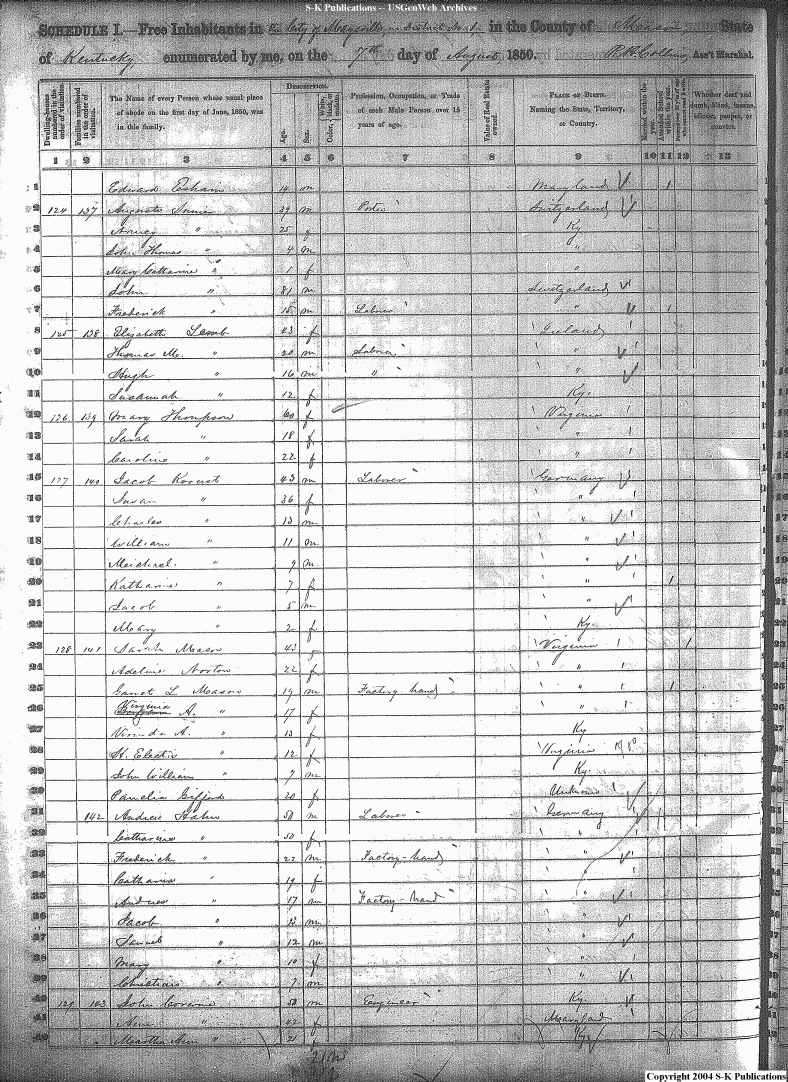 S-K Publications -- USGenWeb Archives
SCHEDULE I.—Free Inhabitants in the City of Maysville in District No. 1 in the County of Mason State
of Kentucky enumerated by me, on the 7th day of August, 1850. R H Collins Ass't Marshal.
DESCRIPTION.
Dwelling-houses numbered in the order of visitation.
Families numbered in the order of visitation.
The Name of every Person whose usual place of abode on the first day of June, 1850, was in this family.
Age.
Sex.
Color, White, black, or mulatto.
Profession, Occupation, or Trade of each Male Person over 15 years of age.
Value of Real Estate owned.
PLACE OF BIRTH. Naming the State, Territory, or Country.
Married within the year.
Attended School within the year.
Whether deaf and dumb, blind, insane, idiotic, pauper, or convict.
1 2 3 4 5 6 7 8 9 10 11 12 13
1 Edward 14 m Maryland 1
2 124 137 Augusta 39 m Porter Switzerland
3 " 25 f Ky
4 John Thomas " 4 m "
5 Mary Catharine " 1 f "
6 John " 81 m Switzerland
7 Frederick " 15 m Laborer " 1
8 125 138 Elizabeth Lamb 43 f Ireland
9 Thomas M. " 20 m Laborer "
10 Hugh " 16 m " "
11 Susannah " 12 f Ky.
12 126 139 Mary Thompson 60 f Virginia
13 Sarah " 18 f "
14 Caroline " 22 f "
15 127 140 Jacob 43 m Laborer Germany
16 Susan " 36 f "
17 Charles " 13 m "
18 William " 11 m "
19 Meichael " 9 m "
20 Katharine " 7 f " 1
21 Jacob " 5 m "
22 Mary " 2 f Ky.
23 128 141 Sarah Mason 43 f Virginia 1
24 Adeline Norton 22 f "
25 Garret L. Mason 19 m Factory hand " 1
26 Virginia A. " 17 f "
27 A. " 13 f Ky
28 " 12 f Virginia
29 John William " 7 m Ky.
30 Pamelia Gifford 20 f Unknown
31 142 Andrew Hahn 50 m Laborer Germany
32 Catharine " 50 f "
33 Frederick " 22 m Factory-hand "
34 Catharine " 19 f "
35 Andrew " 17 m Factory-hand "
36 Jacob " 13 m "
37 Samuel " 12 m "
38 Mary " 10 f "
39 Christian " 7 m "
40 129 143 John 50 m Engineer Ky.
41 Ann " 42 f Maryland
42 Martha Ann " 21 f Ky
Copyright 2004 S-K Publications